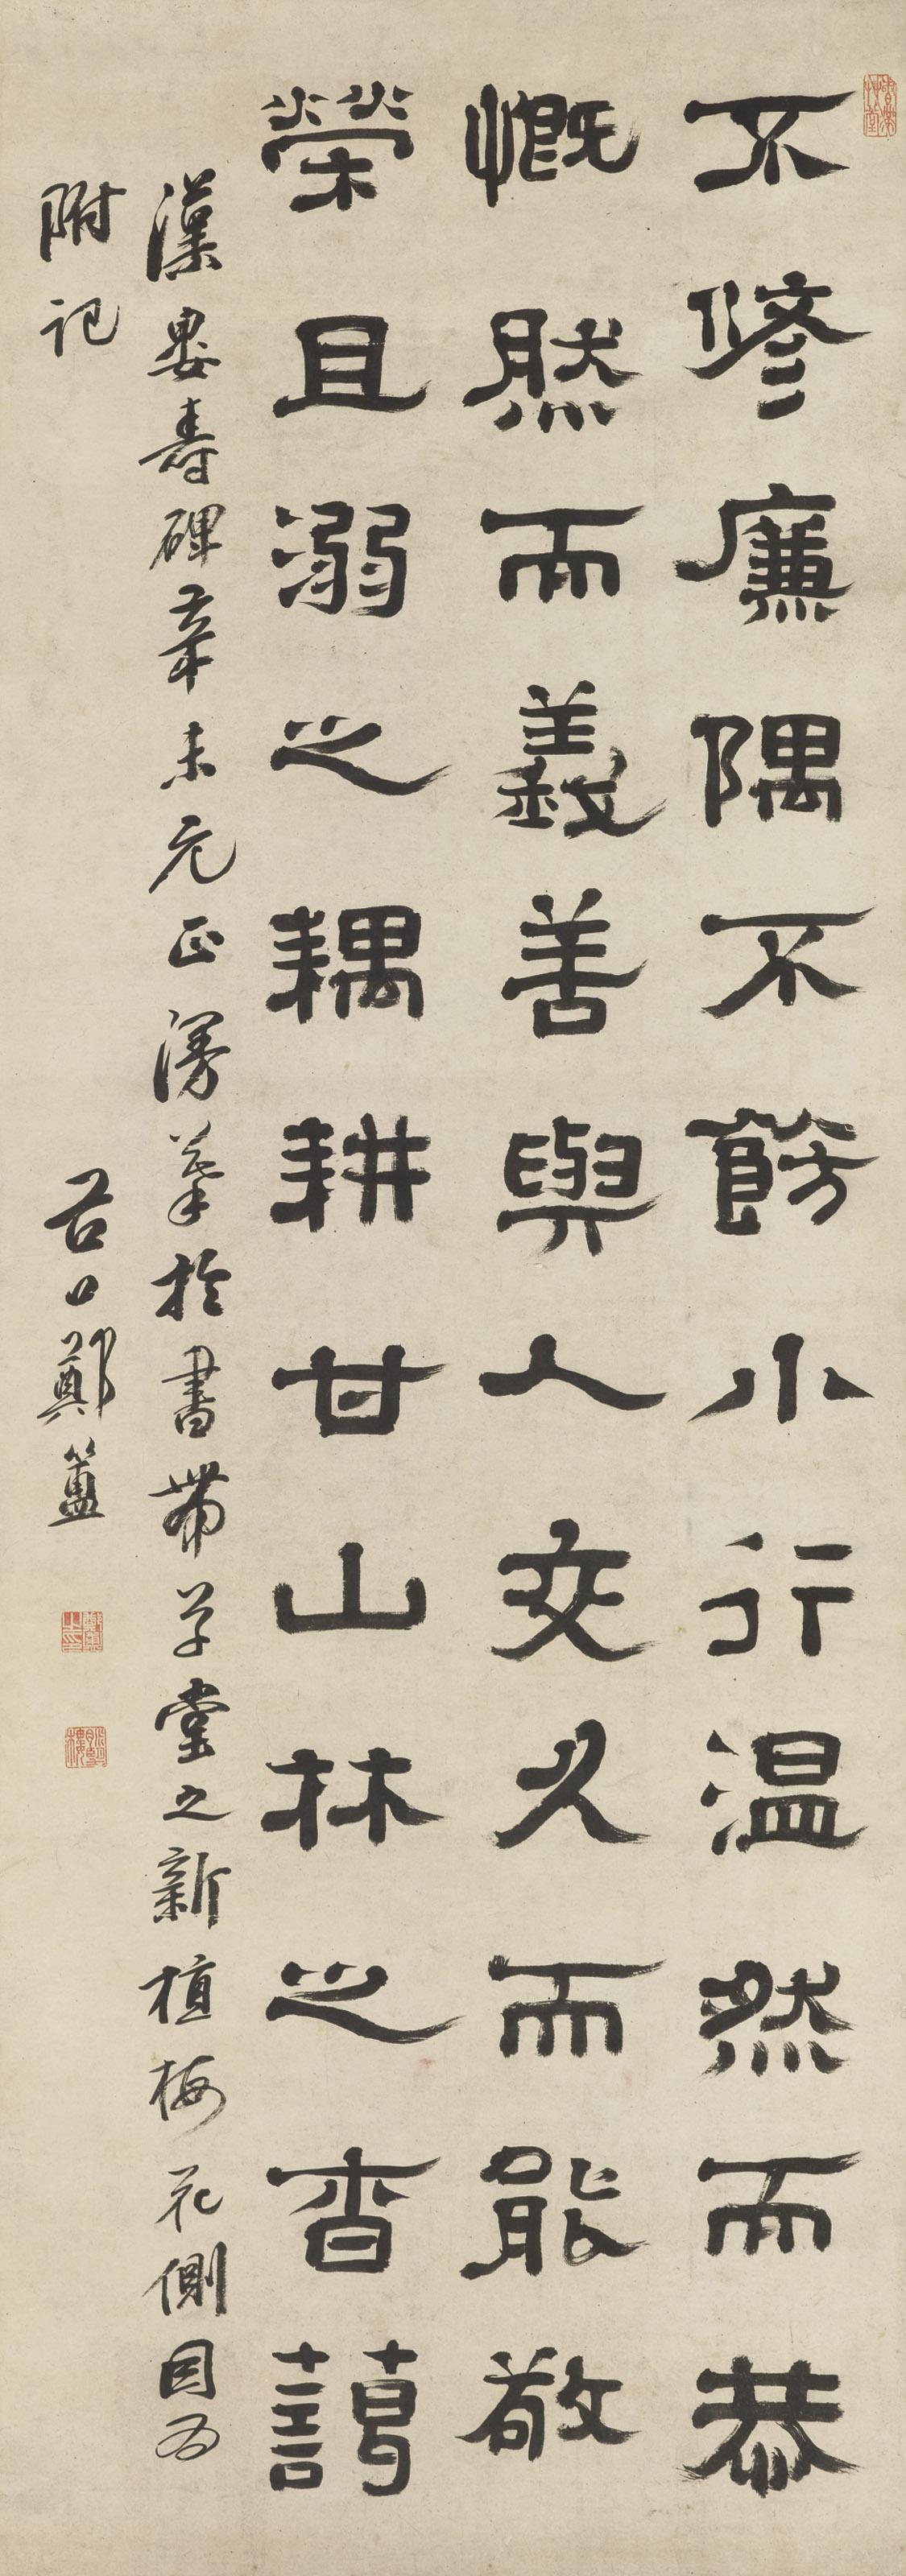 不修廉隅不飾小行温然而恭
慨然而義善與人交久而能敬
榮且溺之耦耕甘山林之杳藹
漢婁壽碑辛未元正漫筆於書帶草堂之新植梅花側因為
附記 谷口鄭簠